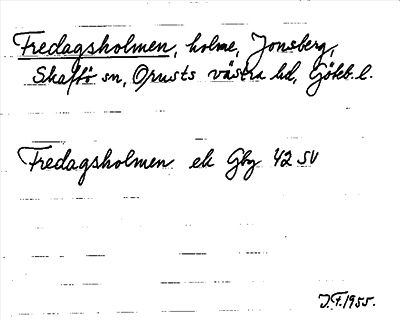 Fredagsholmen, holme, Jonsberg,
Skaftö sn, Orusts västra hd, Göteb. l.
Fredagsholmen ek Gbg 42 SV
J.F. 1955.